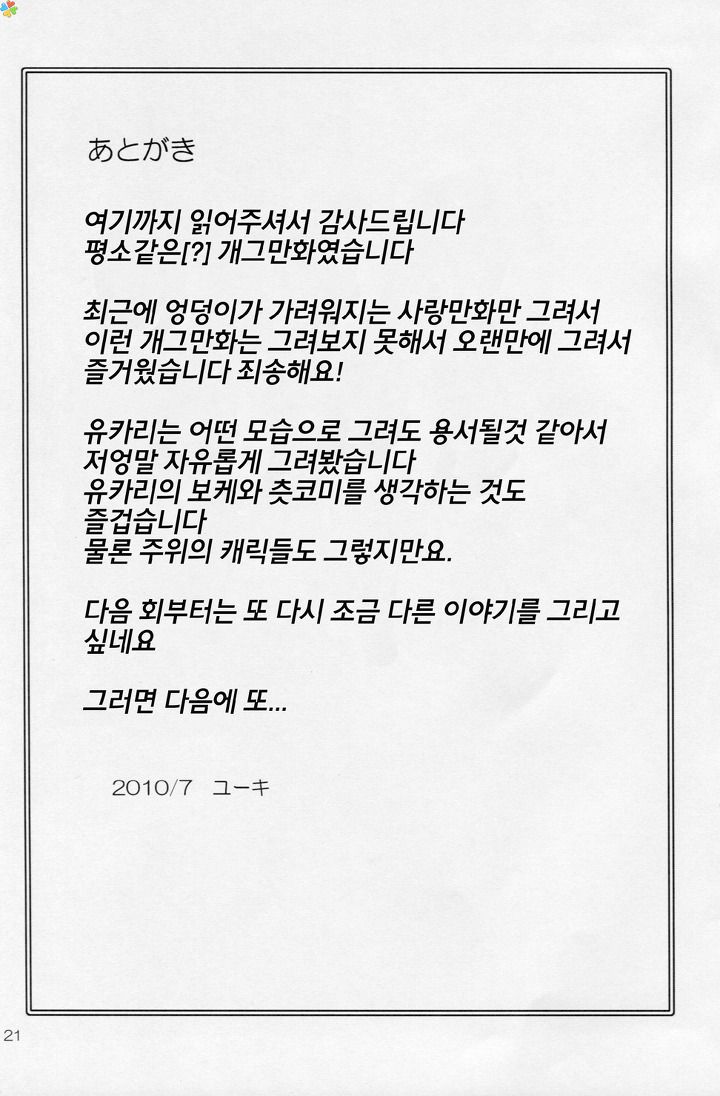 あとがき
여기까지 읽어주셔서 감사드립니다
평소같은[?] 개그만화였습니다
최근에 엉덩이가 가려워지는 사랑만화만 그려서
이런 개그만화는 그려보지 못해서 오랜만에 그려서
즐거웠습니다 죄송해요!
유카리는 어떤 모습으로 그려도 용서될것 같아서
저엉말 자유롭게 그려봤습니다
유카리의 보케와 츳코미를 생각하는 것도
즐겁습니다
물론 주위의 캐릭들도 그렇지만요.
다음 회부터는 또 다시 조금 다른 이야기를 그리고
싶네요
그러면 다음에 또...
2010/7 ユーキ
21